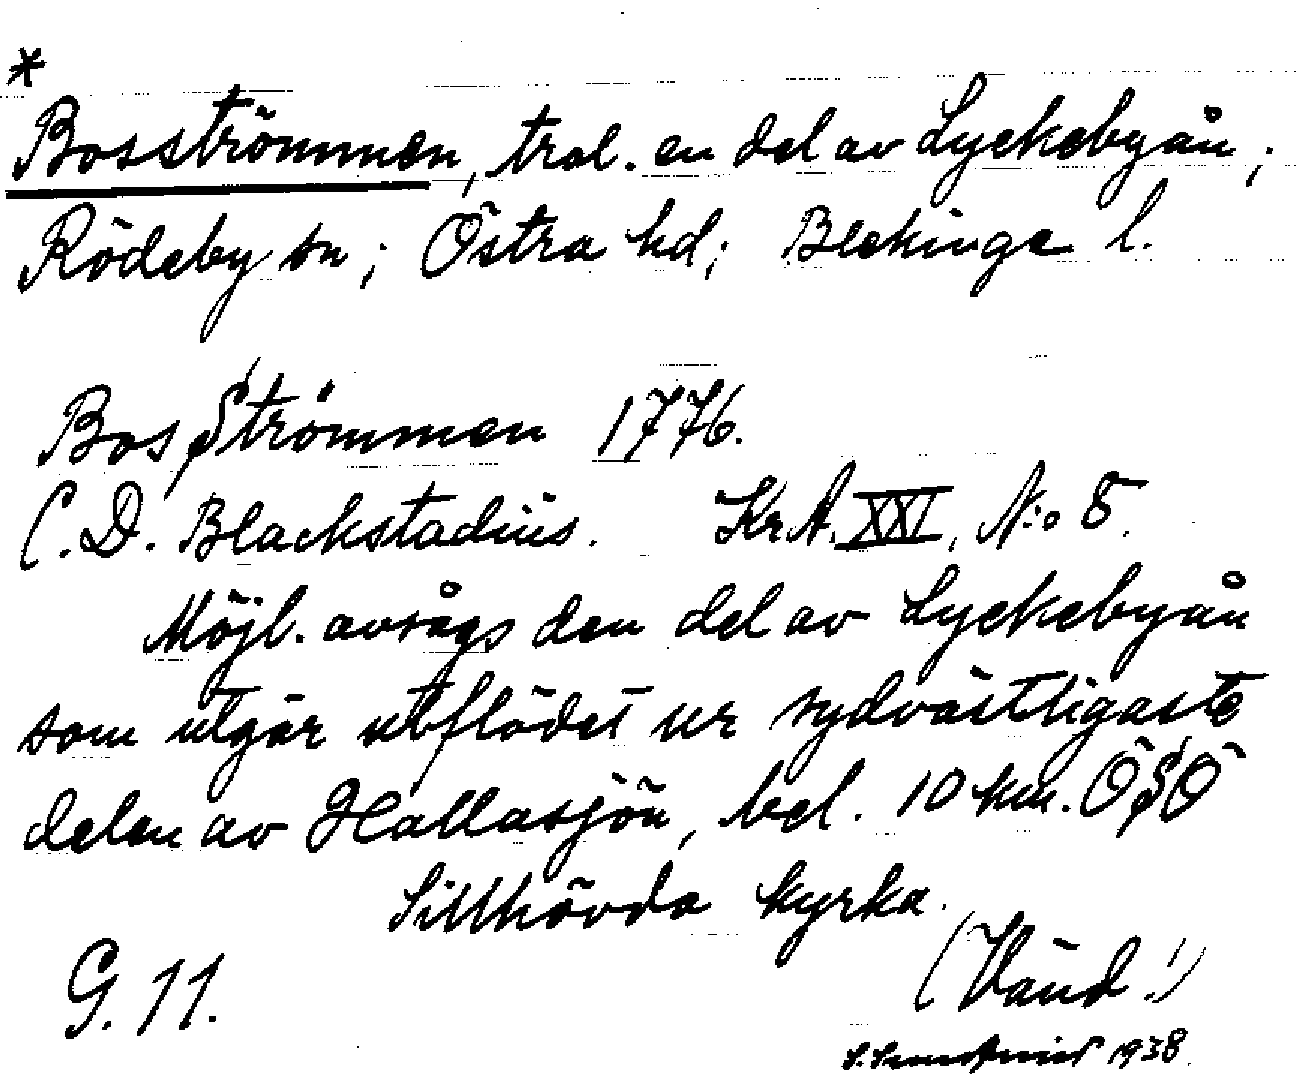 *
Bosströmmen, trol. en del av Lyckebyån;
Rödeby sn; Östra hd; Blekinge l.
Bos Strömmen 1776.
C. D. Blackstadius. Kr. A. XXI, N:o 8.
Möjl. avságs den del av Lyckebyån
som utgör utflödet ur sydvästligaste
delen av Hallasjön, bel. 10 km. ÖSÖ
Sillhövda kyrka.
G. 11. (Vänd!)
1938